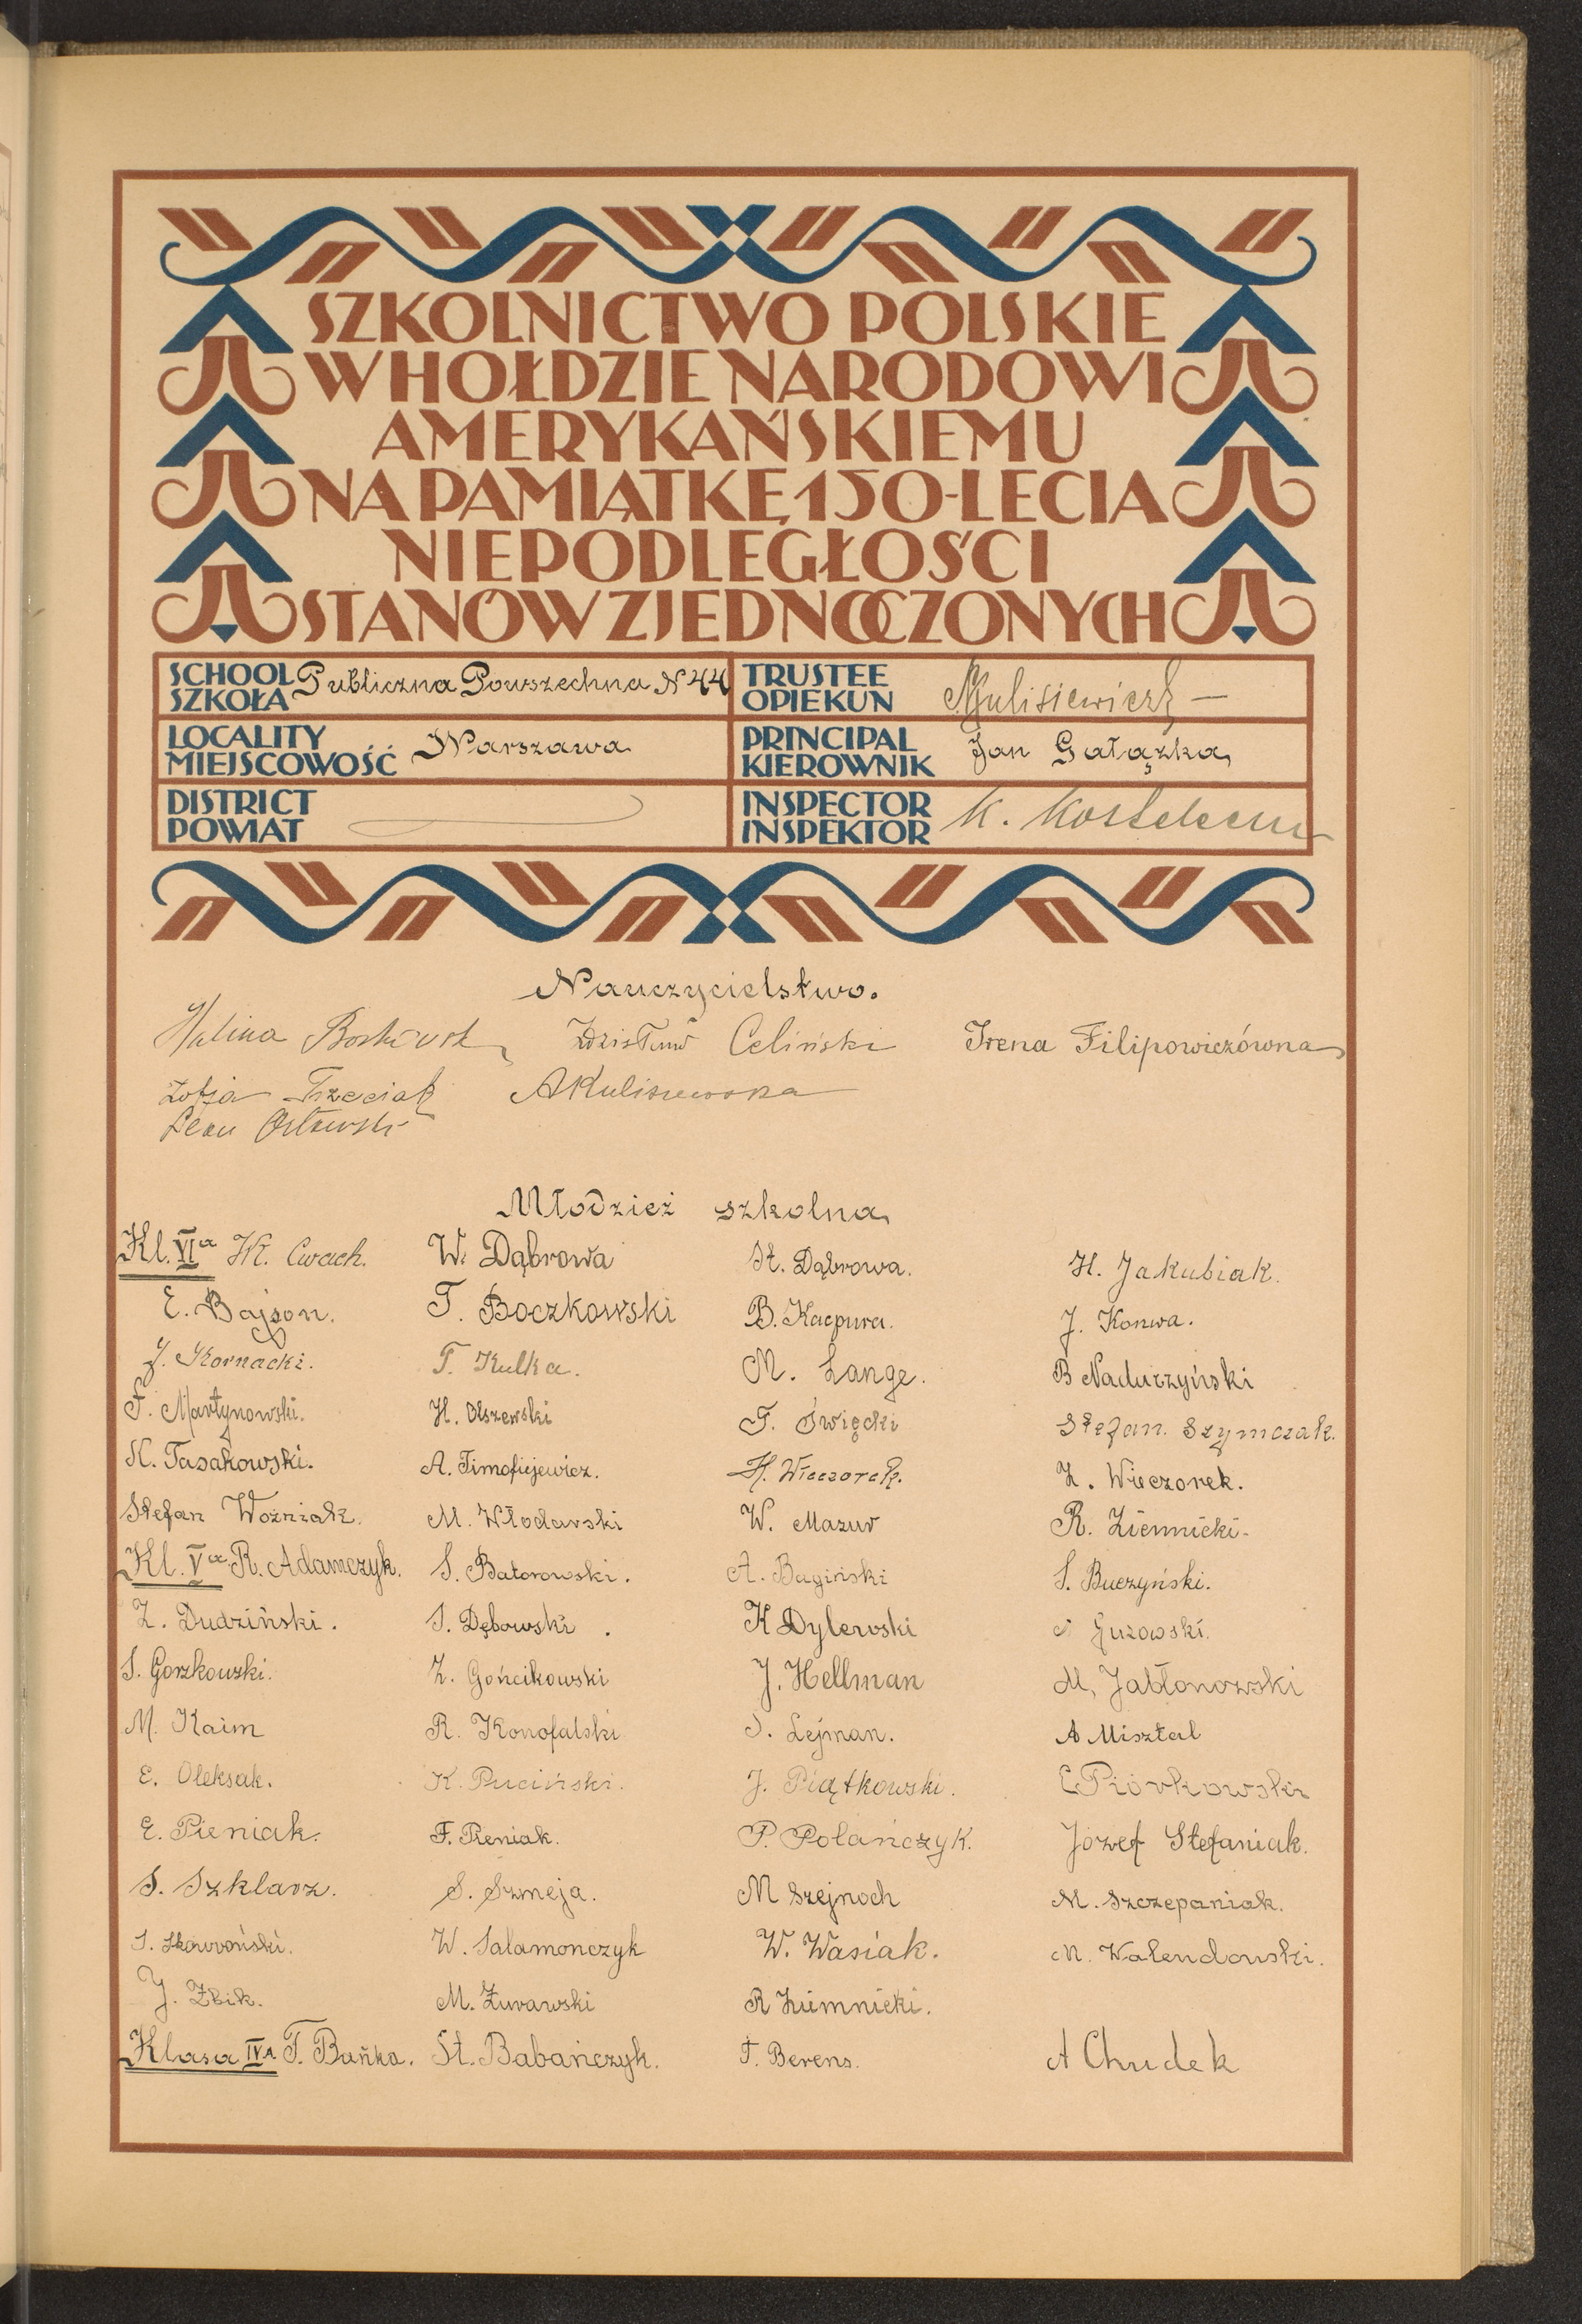 SZKOLNICTWO POLSKIE
W HOŁDZIE NARODOWI
AMERYKAŃSKIEMU
NA PAMIĄTKĘ 150-LECIA
NIEPODLEGŁOŚCI
STANÓW ZJEDNOCZONYCH
SCHOOL SZKOŁA Publiczna Powszechna N 44 TRUSTEE OPIEKUN
LOCALITY MIEJSCOWOŚĆ Warszawa PRINCIPAL KIEROWNIK Jan Gałązka
DISTRICT POWIAT INSPECTOR INSPEKTOR K.
Nauczycielstwo.
Halina Zdzisław Celiński Irena Filipowiczówna
Zofja Trzeciak AKuliszewska
Leon Orłowski
Młodzież szkolna
Kl. VIa Wł. Cwach. W. Dąbrowa St. Dąbrowa. H. Jakubiak.
E. Bajson. T. Boczkowski B. Kacpura. J. Konwa.
J. Kornacki. T. Kulka. M. Lange. B Nadurzyński
F. Martynowski. H. Olszewski F. Święcki Stefan. Szymczak.
K. Tasakowski. A. Timofiejewicz. H. Wieczorek. Z. Wieczorek.
Stefan Woźniak. M. Włodarski W. Mazur R. Ziemnicki-
Kl. Va R. Adamczyk. S. Batorowski. A. Bagiński S. Buczyński.
Z. Dudziński. S. Dębowski. K Dylewski Guzowski.
S. Gorzkowski. Z. Gońcikowski J. Hellman M, Jabłonowski
M. Kaim R. Konofalski S. Lejman. A Misztal
E. Oleksak. K. Puciński. J. Piątkowski. E Piórkowski
E. Pieniak. F. Pieniak. P. Polańczyk. Józef Stefaniak.
S. Szklarz. S. Szmeja. M Szejnoch M. Szczepaniak.
S. Skowroński. W. Salamonczyk W. Wasiak. M. Walendowski.
J. Żbik. M. Żurawski R Ziemnicki.
Klasa IVA T. Bańka. St. Babańczyk. T. Berens. A Chudek